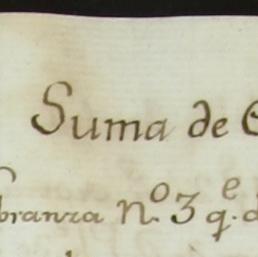 Suma de
branza nº. 3 q.e